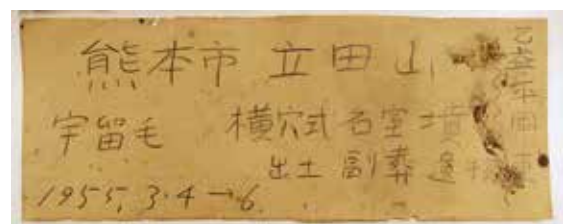 熊本市 立田山
宇留毛 横穴式石室墳
出土 副葬
1955, 3.4→6.